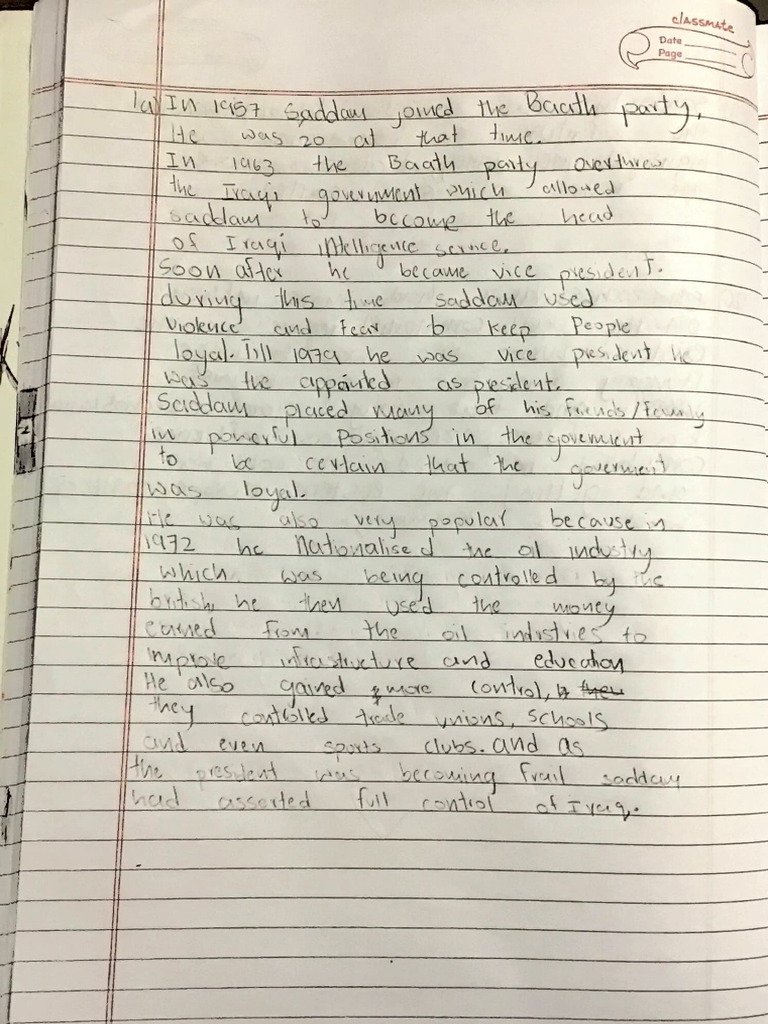 classmate
Date
Page
1a) In 1957 Saddam joined the Baath party,
He was 20 at that time.
In 1963 the Baath party overthrew
the Iraqi government which allowed
saddam to become the head
of Iraqi intelligence service.
Soon after he became vice president.
during this time saddam used
violence and fear to keep People
loyal. Till 1979 he was vice president he
was the appointed as president.
Saddam placed many of his friends/family
in powerful positions in the government
to be certain that the goverment
was loyal.
He was also very popular because in
1972 he Nationalised the oil industry
which was being controlled by the
british, he then used the money
earned from the oil industries to
improve infrastructure and education
He also gained more control,
they controlled trade unions, schools
and even sports clubs. and as
the president was becoming frail saddam
had asserted full control of Iraq.